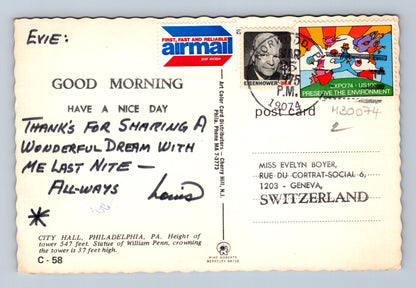 EVIE:
GOOD MORNING
HAVE A NICE DAY
THANK'S FOR SHARING A
WONDERFUL DREAM WITH
ME LAST NITE —
ALL-WAYS
Louis
*
CITY HALL, PHILADELPHIA, PA. Height of
tower 547 feet. Statue of William Penn, crowning
the tower is 37 feet high.
C-58
Art Color Card Distributors - Cherry Hill, N.J.
Phila. Phone MA 7-2773
FIRST, FAST AND RELIABLE
airmail
EISENHOWER
EXPO'74 · US10c
PRESERVE THE ENVIRONMENT
P.M.
19074
post card
M30074
2
MISS EVELYN BOYER,
RUE DU CORTRAT-SOCIAL 6,
1203 - GENEVA,
SWITZERLAND
MIKE ROBERTS
BERKELEY 94710